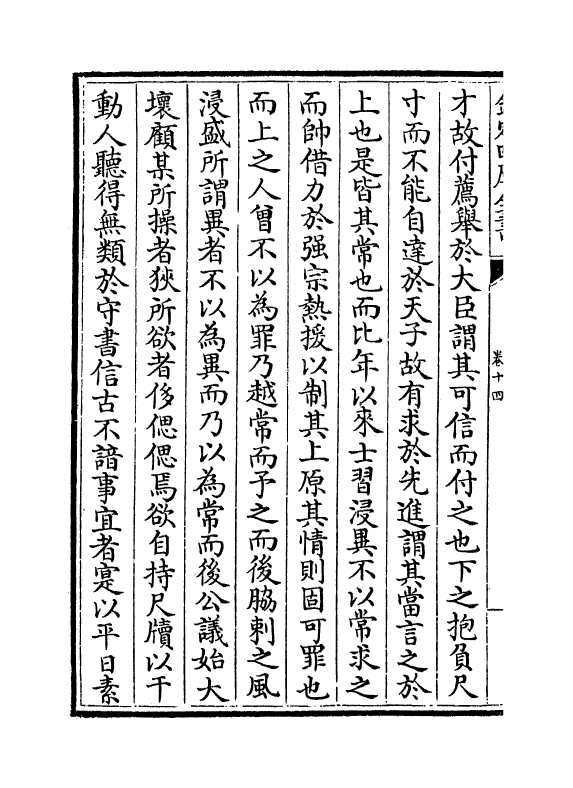 欽定四庫全書
卷十四
才故付薦舉於大臣謂其可信而付之也下之抱負尺
寸而不能自達於天子故有求於先進謂其當言之於
上也是皆其常也而比年以來士習浸異不以常求之
而帥借力於强宗熱援以制其上原其情則固可罪也
而上之人曾不以為罪乃越常而予之而後脇刺之風
浸盛所謂異者不以為異而乃以為常而後公議始大
壞顧某所操者狹所欲者侈偲偲焉欲自持尺牘以干
動人聽得無類於守書信古不諳事宜者寔以平日素